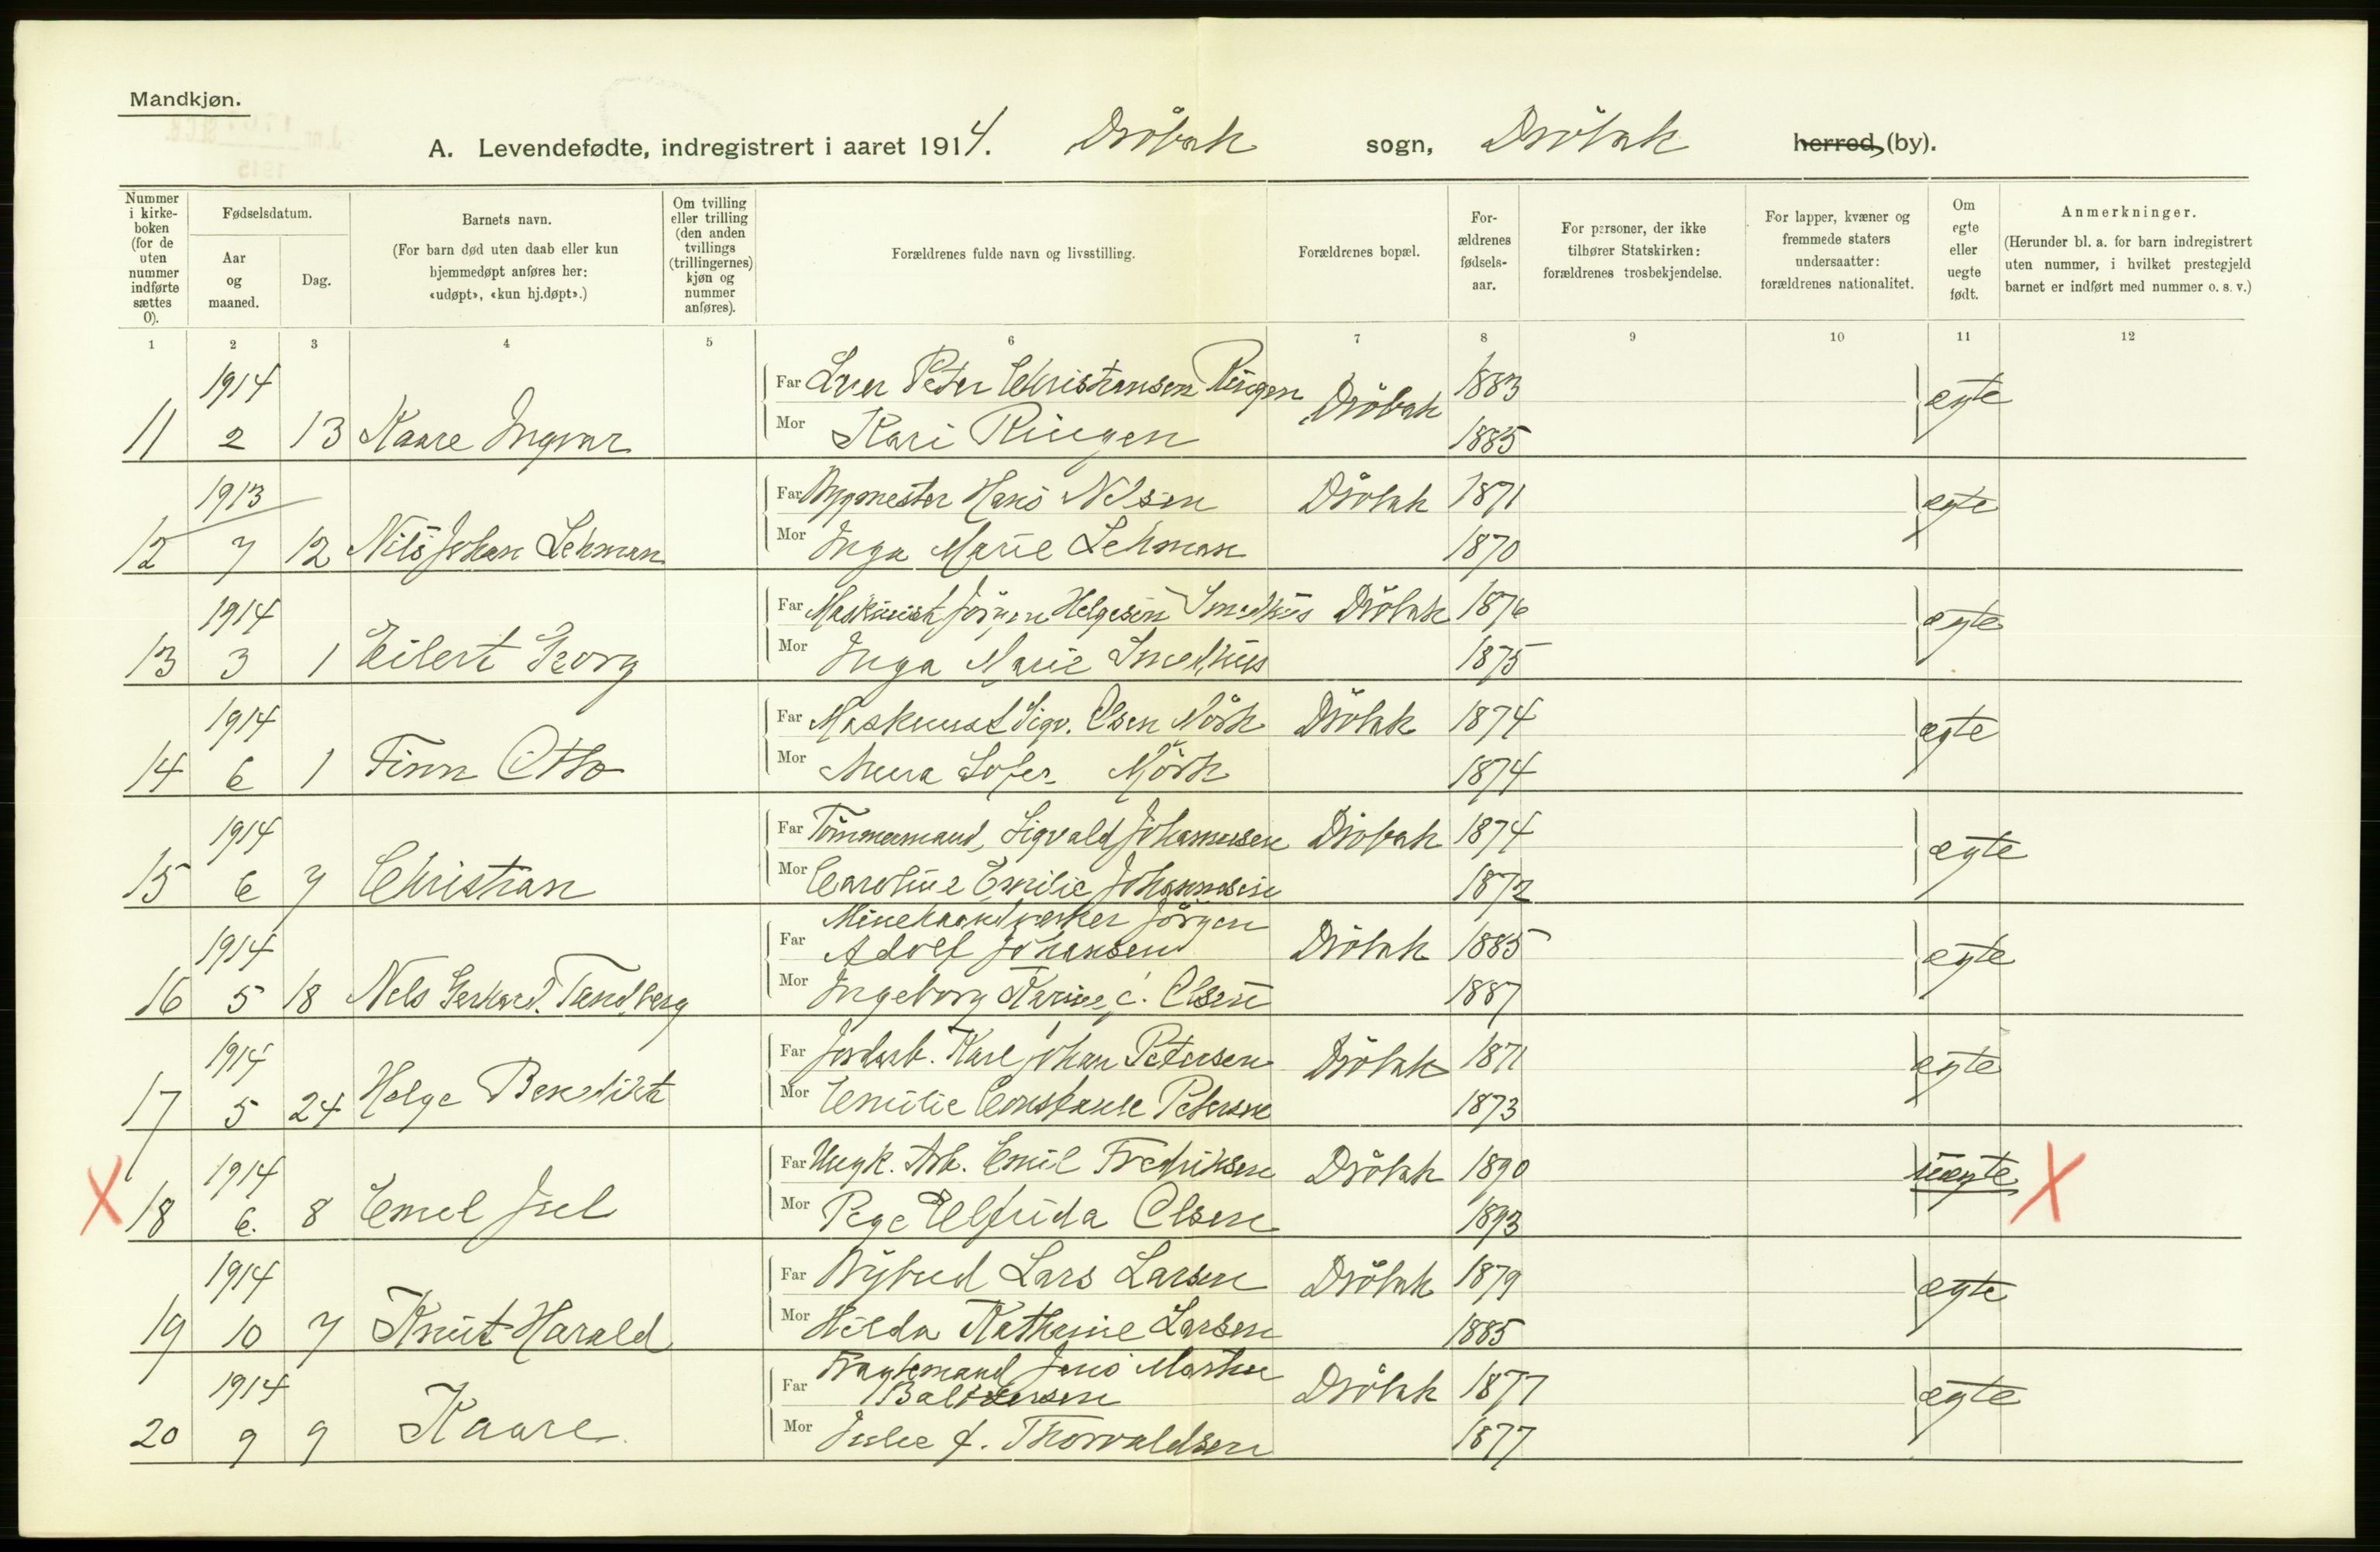 Mandkjøn.
A. Levendefødte, indregistrert i aaret 1914. Dröbak sogn, Dröbak herred, (by).
Nummer i kirkeboken (for de uten nummer indførte sættes 0).
Fødselsdatum.
Aar og maaned.
Dag.
Barnets navn.
(For barn død uten daab eller kun hjemmedøpt anføres her: «udøpt», «kun hj.døpt».)
Om tvilling eller trilling (den anden tvillings (trillingernes) kjøn og nummer anføres).
Forældrenes fulde navn og livsstilling.
Forældrenes bopæl.
Forældrenes fødselsaar.
For personer, der ikke tilhører Statskirken: forældrenes trosbekjendelse.
For lapper, kvæner og fremmede staters undersaatter: forældrenes nationalitet.
Om egte eller uegte født.
Anmerkninger.
(Herunder bl. a. for barn indregistrert uten nummer, i hvilket prestegjeld barnet er indført med nummer o. s. v.)
1 2 3 4 5 6 7 8 9 10 11 12
1914 Far Peter Christiansen Ringen Dröbak 1883 egte
11 2 13 Kaare Ingvar Mor Kari Ringen 1885
1913 Far Hans Nilsen Dröbak 1871 egte
12 7 12 Nils Johan Lehman Mor Inga Marie Lehman 1870
1914 Far Maskinist Jörgen Helgesen Smedhus Dröbak 1876 egte
13 3 1 Eilert Georg Mor Inga Marie Smedhus 1875
1914 Far Maskinist Sigv. Olsen Mörk Dröbak 1874 egte
14 6 1 Finn Otto Mor Anna Sofie Mörk 1874
1914 Far Tömmermand, Sigvald Johannesen Dröbak 1874 egte
15 6 7 Christian Mor Caroline Emilie Johannesen 1872
Minehaandverker Jörgen
1914 Far Adolf Johansen Dröbak 1885 egte
16 5 18 Nels Gerhard Tandberg Mor Ingeborg Karine, f. Olsen 1887
1914 Far Jordarb. Karl Johan Petersen Dröbak 1871 egte
17 5 24 Helge Benedikt Mor Emilie Constanse Petersen 1873
1914 Far Ungk. Arb. Emil Fredriksen Dröbak 1890 uegte
18 6. 8 Emil Mor Elfrida Olsen 1893
1914 Far Lars Larsen Dröbak 1879 egte
19 10 7 Knut Harald Mor Hilda Kathrine Larsen 1885
Fragtemand Jens Martin
1914 Far Baltzersen Dröbak 1877 egte
20 9 9 Kaare Mor Julie f. Thorvaldsen 1877